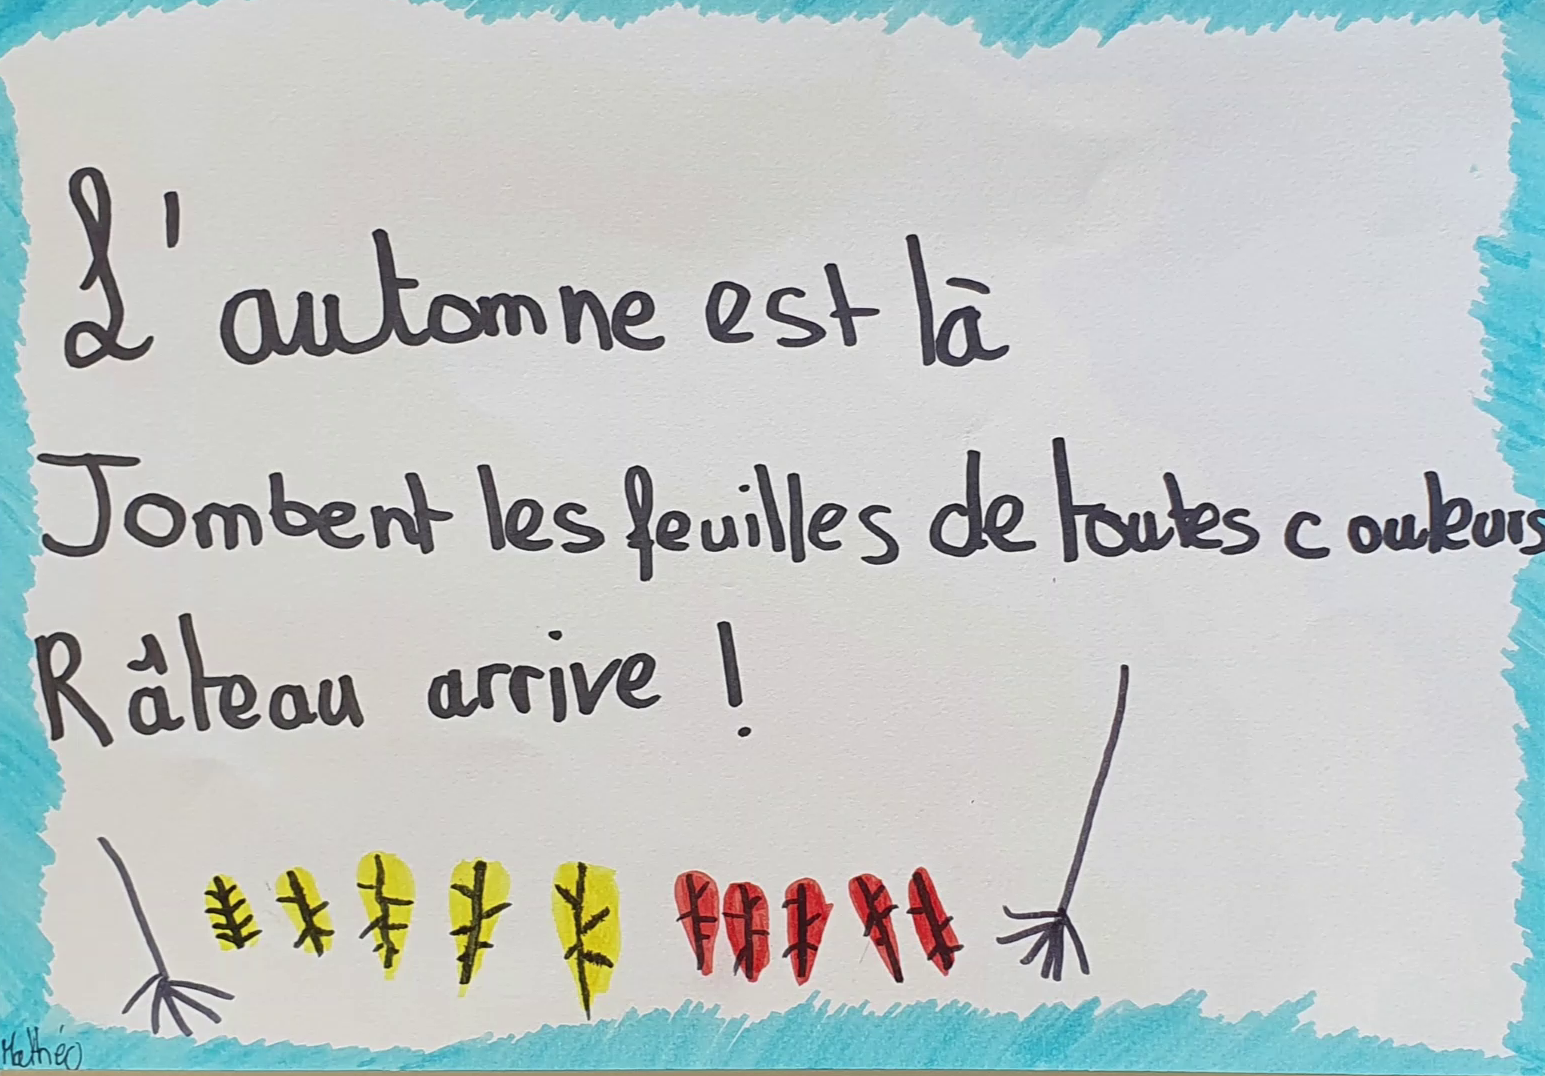 L'automne est là
Tombent les feuilles de toutes couleurs
Râteau arrive !
Mathéo